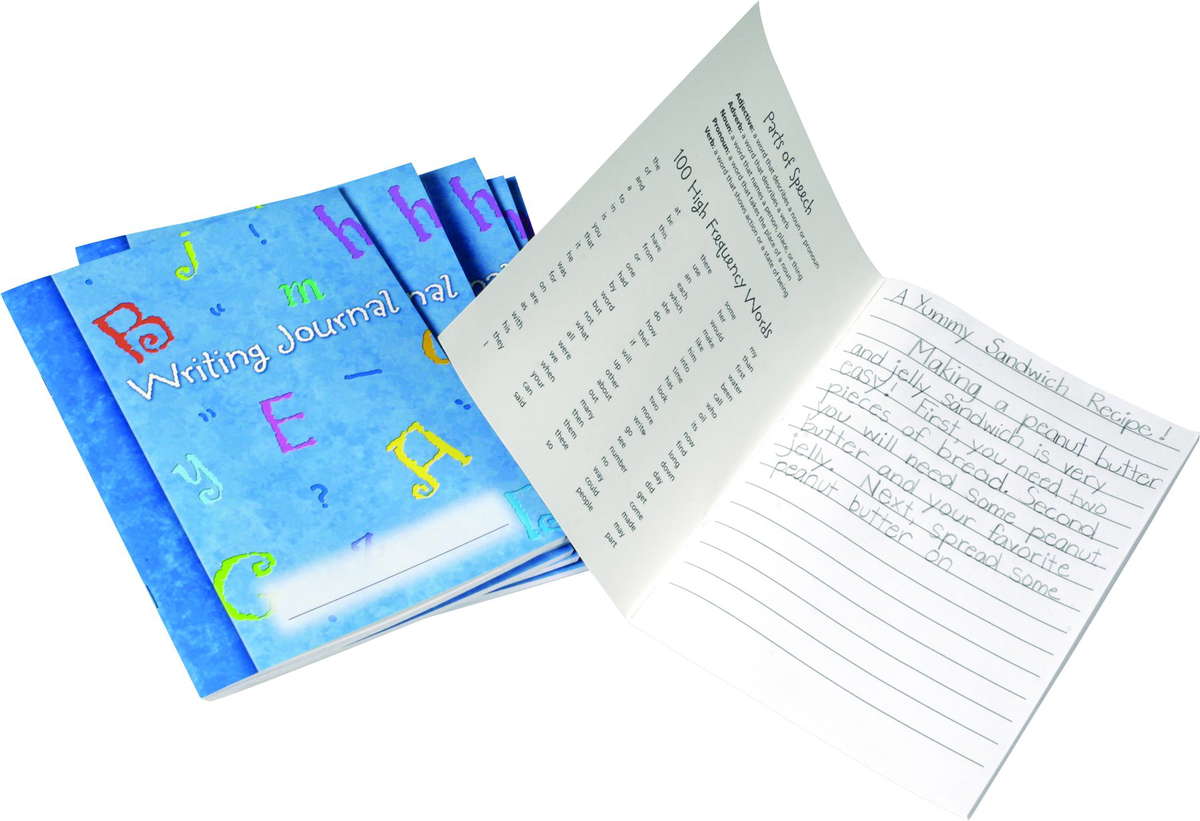 j
h
h
h
B
m
Writing Journal
nal
E
y
A
?
C
Parts of Speech
Adjective: a word that describes a noun or pronoun
Adverb: a word that describes a verb
Noun: a word that names a person, place, or thing
Pronoun: a word that takes the place of a noun
Verb: a word that shows action or a state of being
100 High Frequency Words
the at there some my
of be use her than
and this an would first
a have each make water
to from which like been
in or she him call
is one do into who
you had how time oil
that by their has its
it word if look now
he but will two find
was not up more long
for what other write down
on all about go day
are were out see did
as we many number get
with when then no come
his your them way made
they can these could may
I said so people part
A Yummy Sandwich Recipe!
Making a peanut butter
and jelly sandwich is very
easy! First, you need two
pieces of bread. Second
you will need some peanut
butter and your favorite
jelly. Next, spread some
peanut butter on